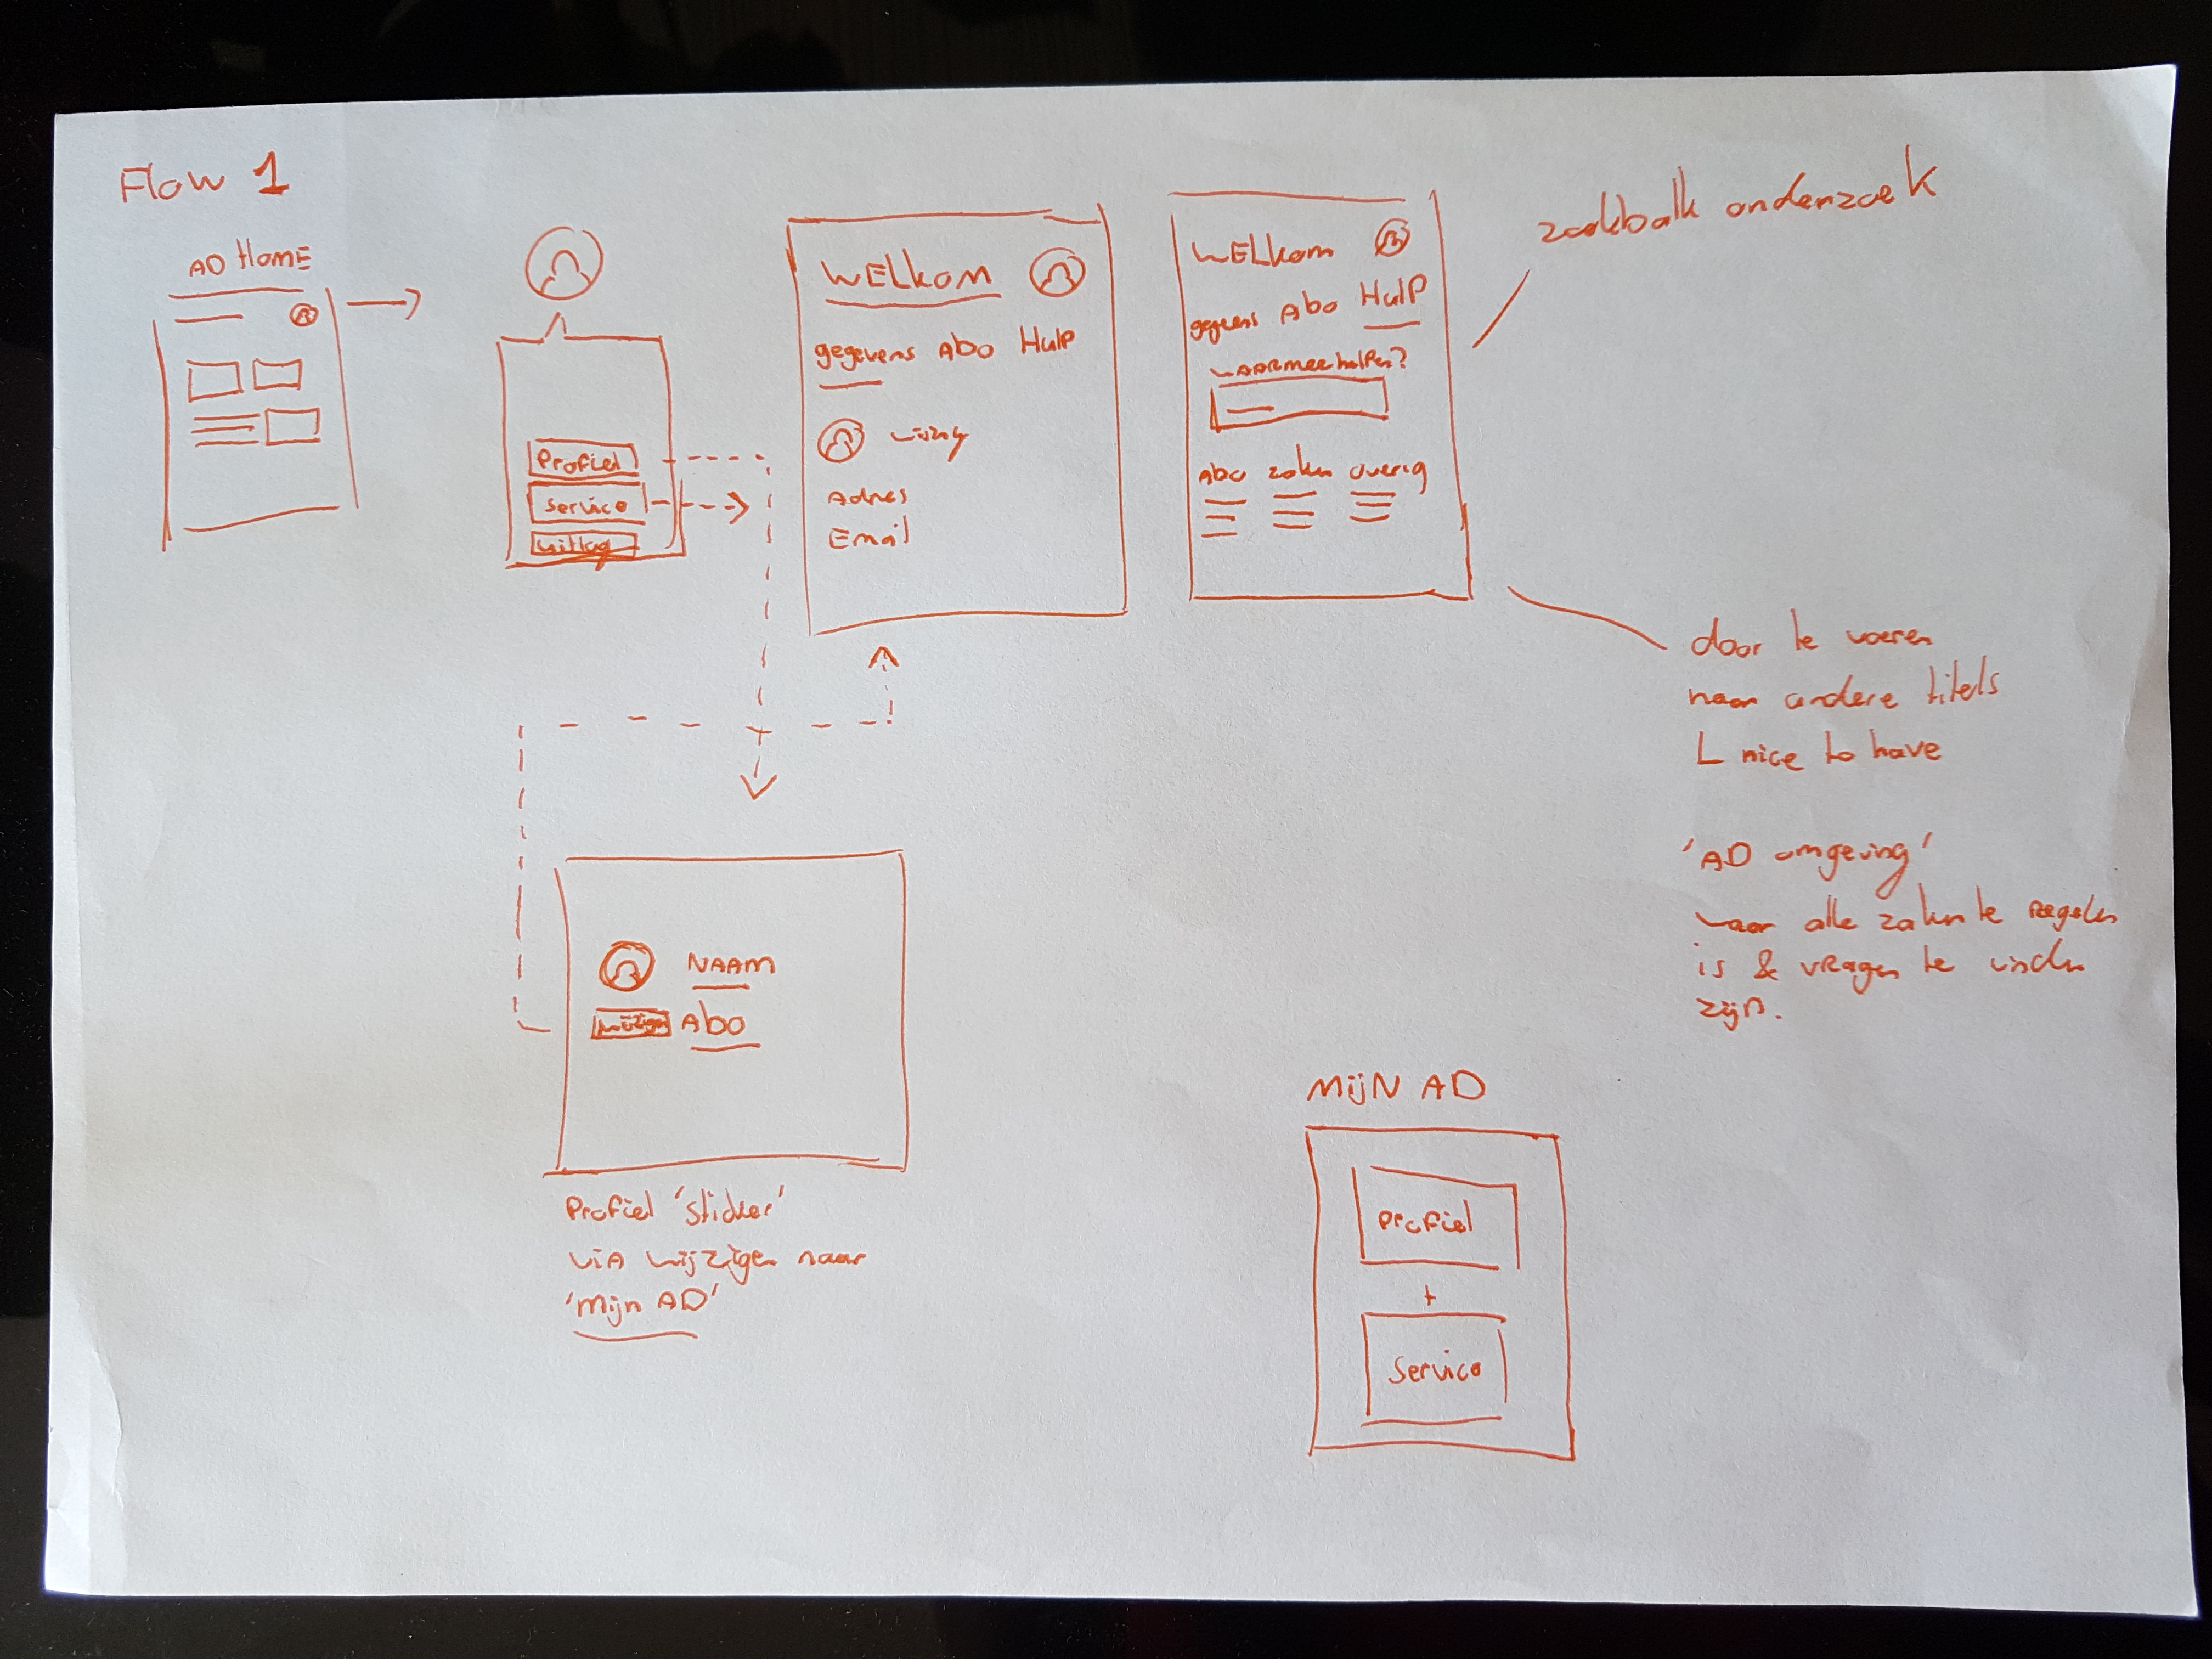 Flow 1
AD HOME
Profiel
Service
uitlog
WELkom
gegevens Abo Hulp
Adres
Email
WELkom
gegevens Abo Hulp
WAARmee helpen?
Abo zaken overig
zoekbalk onderzoek
door te voeren
naar andere titels
L nice to have
'AD omgeving'
waar alle zaken te regelen
is & vragen te vinden
zijn.
NAAM
wijzigen Abo
Profiel 'sticker'
viA wijzigen naar
'Mijn AD'
MijN AD
Profiel
+
Service